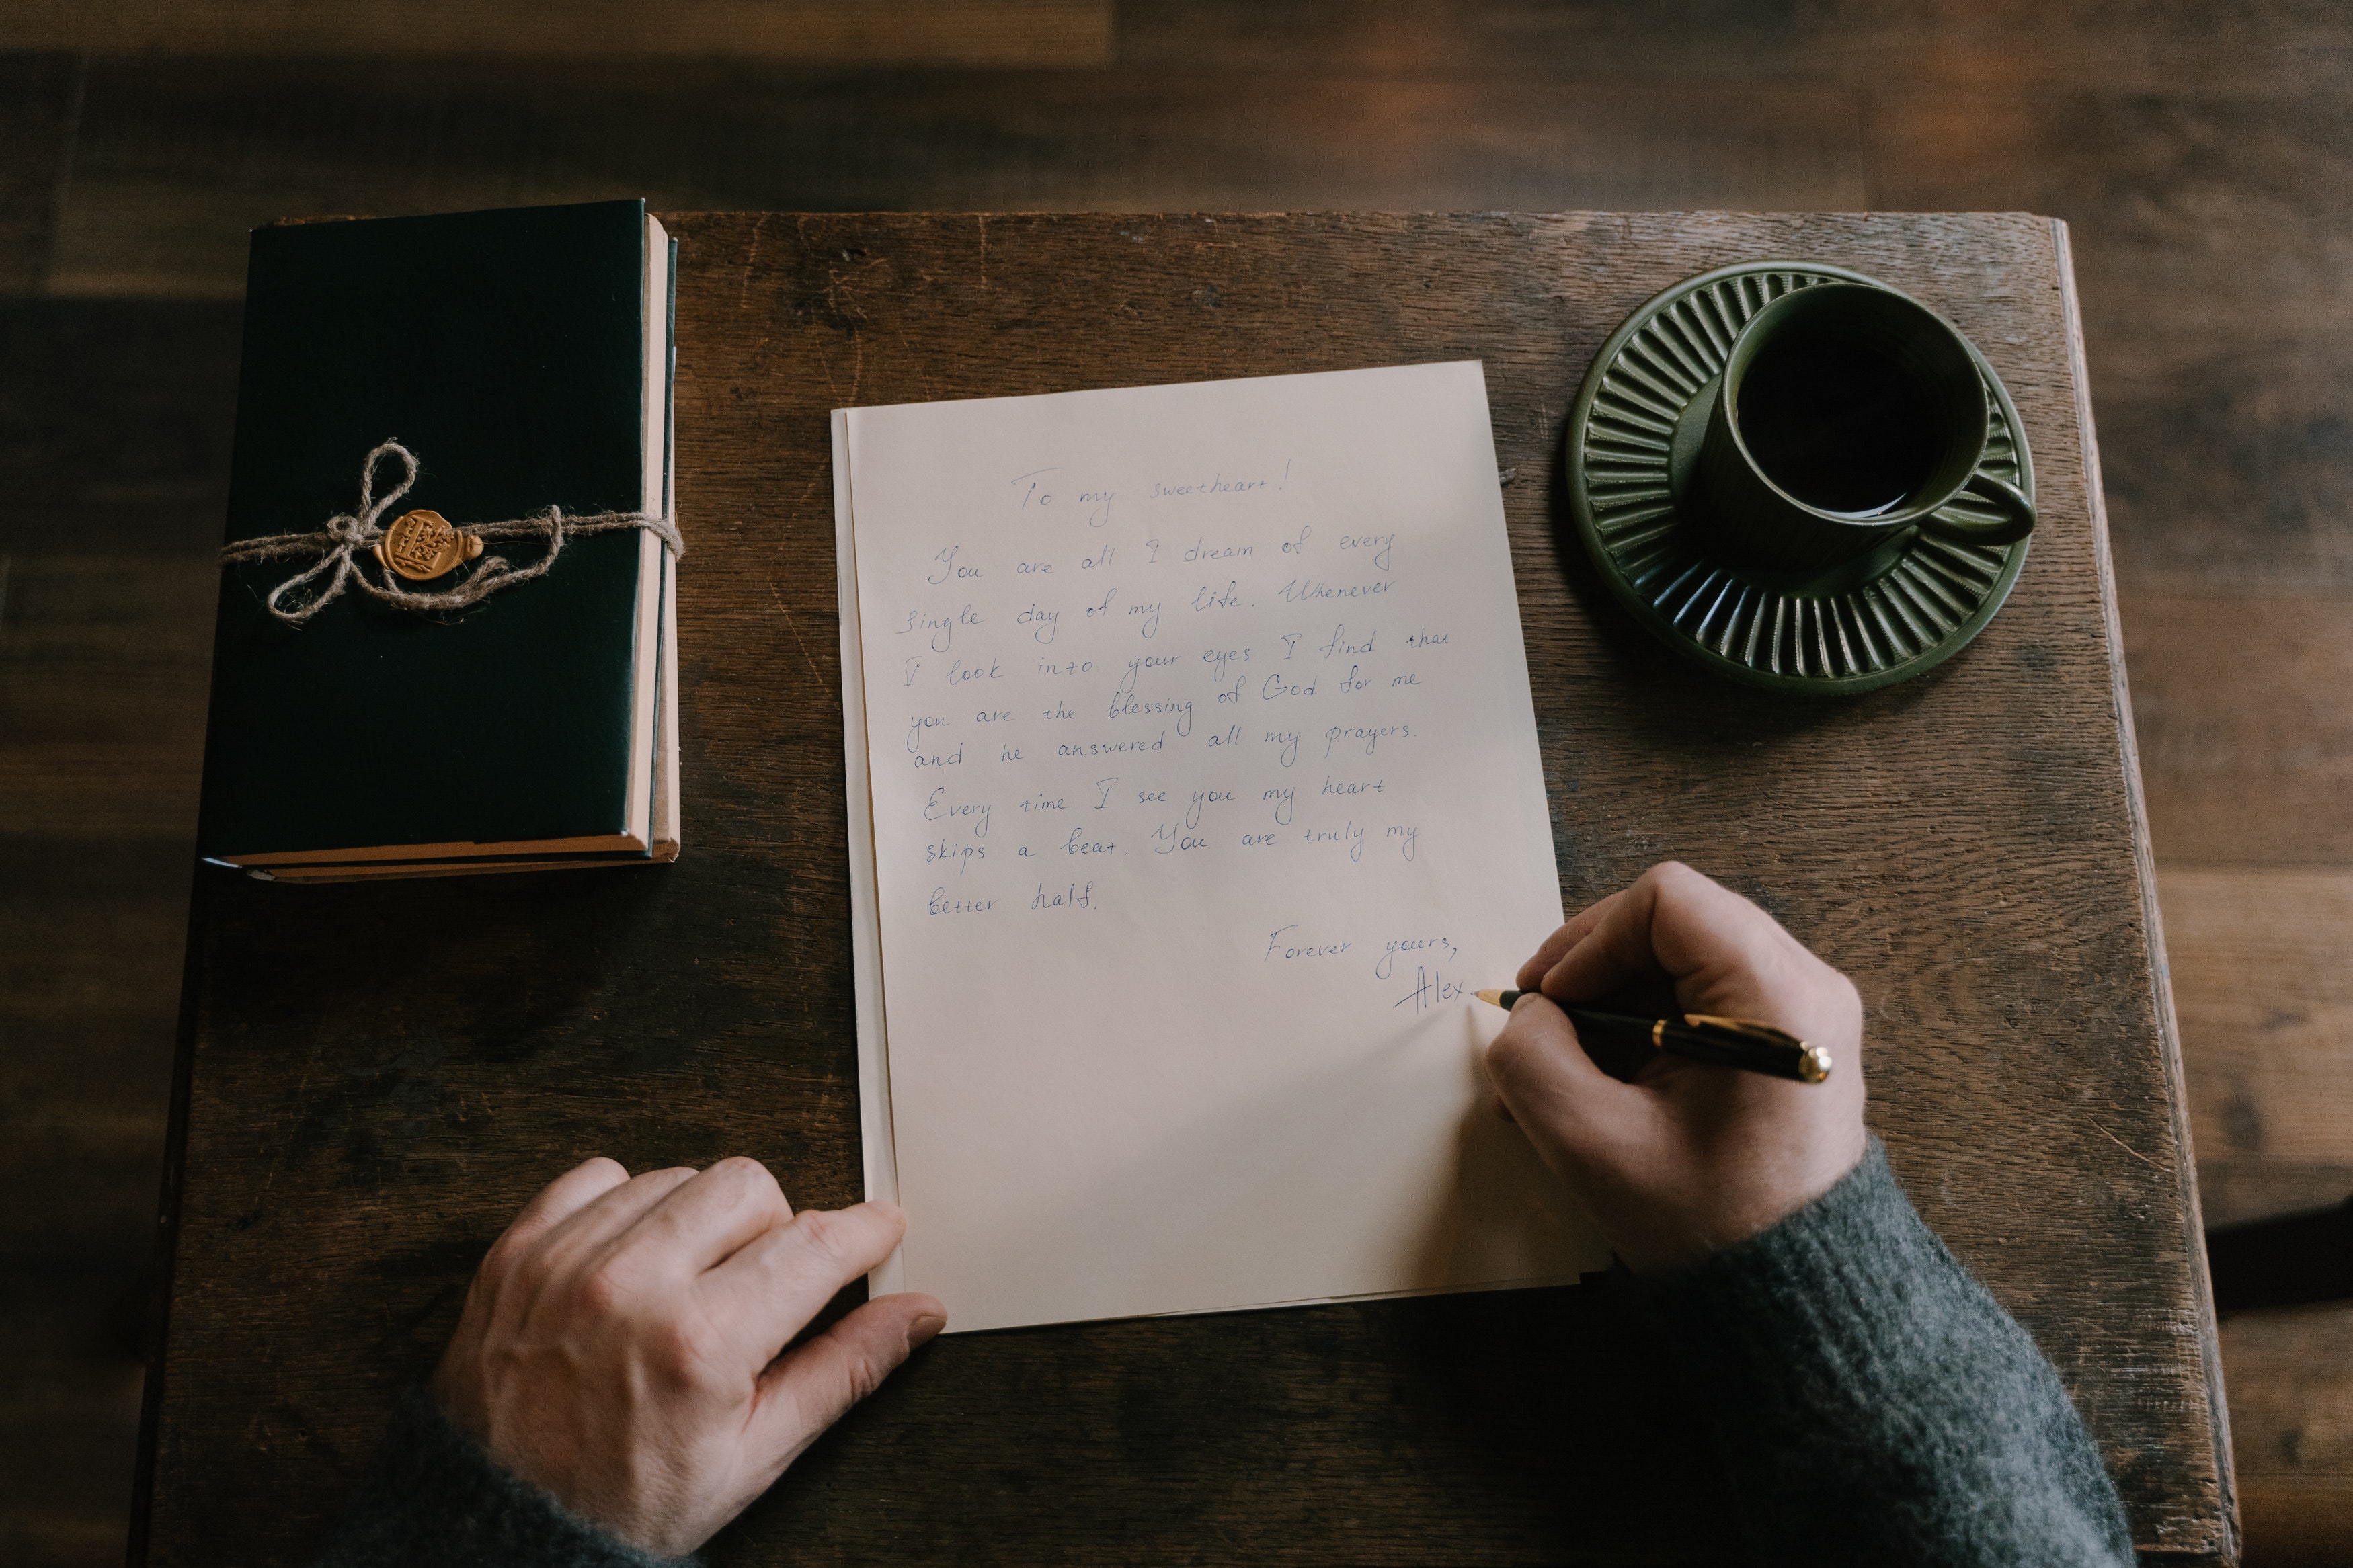 To my sweetheart!
You are all I dream of every
single day of my life. Whenever
I look into your eyes I find that
you are the blessing of God for me
and he answered all my prayers.
Every time I see you my heart
skips a beat. You are truly my
better half.
Forever yours,
Alex